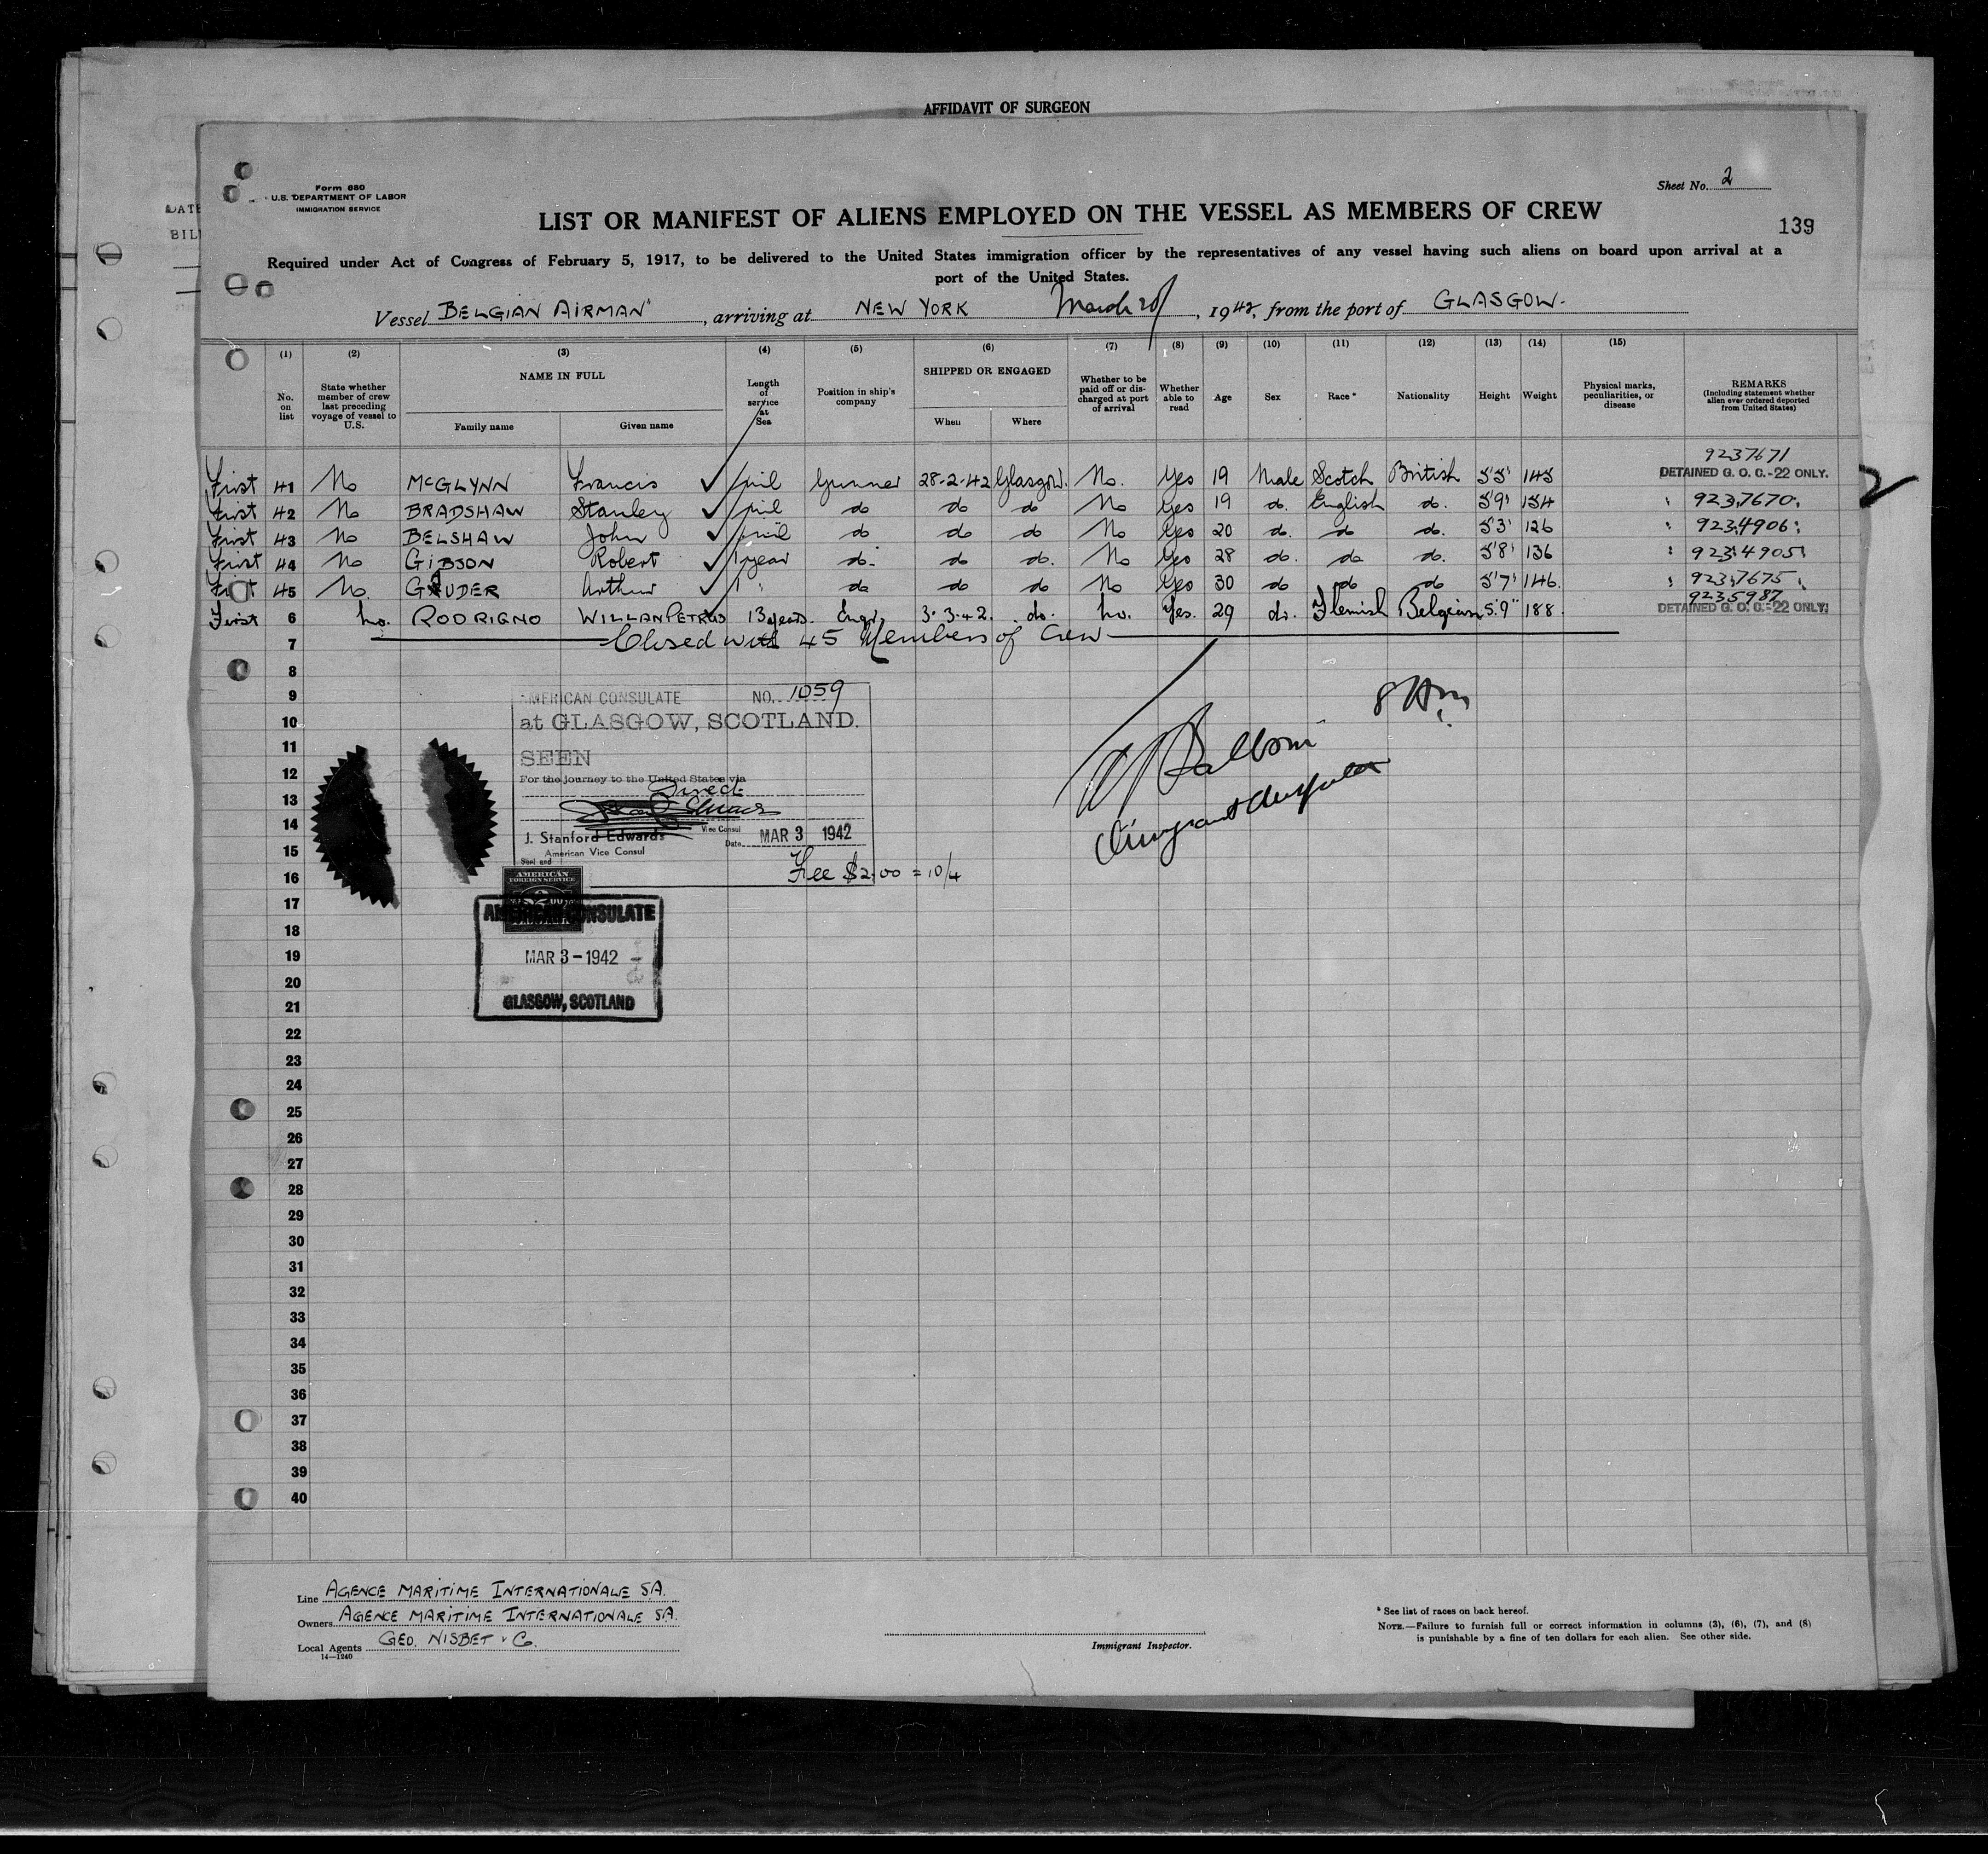 AFFIDAVIT OF SURGEON
Form 680
U.S. DEPARTMENT OF LABOR
IMMIGRATION SERVICE
Sheet No. 2
139
LIST OR MANIFEST OF ALIENS EMPLOYED ON THE VESSEL AS MEMBERS OF CREW
Required under Act of Congress of February 5, 1917, to be delivered to the United States immigration officer by the representatives of any vessel having such aliens on board upon arrival at a
port of the United States.
Vessel BELGIAN AIRMAN", arriving at NEW YORK March 20, 1942, from the port of GLASGOW.
(1) (2) (3) (4) (5) (6) (7) (8) (9) (10) (11) (12) (13) (14) (15)
No. on list
State whether member of crew last preceding voyage of vessel to U.S.
NAME IN FULL
Family name
Given name
Length of service at Sea
Position in ship's company
SHIPPED OR ENGAGED
When
Where
Whether to be paid off or discharged at port of arrival
Whether able to read
Age
Sex
Race*
Nationality
Height
Weight
Physical marks, peculiarities, or disease
REMARKS
(Including statement whether alien ever ordered deported from United States)
9237671
First 41 No McGLYNN Francis ✓ nil Gunner 28-2-42 Glasgow. No. Yes 19 Male Scotch British 5'5' 145 DETAINED G. O. C.-22 ONLY.
2
First 42 No BRADSHAW Stanley ✓ nil do do do No Yes 19 do. English do. 5'9' 154 " 9237670 "
First 43 No BELSHAW John ✓ nil do do do No Yes 20 do. do do. 5'3' 126 " 9234906 "
First 44 No GIBSON Robert ✓ 1 year do. do do. No Yes 28 do. do. do. 5'8' 136 " 9234905 "
First 45 No. GAUDER Arthur ✓ 1 " do do do No Yes 30 do do do 5'7' 146. " 9237675 "
9235987
First 6 No. RODRIGNO WILLAN PETRUS 13 years. Engr, 3.3.42. do. No. Yes. 29 do. Flemish Belgian 5'9" 188. DETAINED G. O. C.-22 ONLY.
7 Closed with 45 Members of Crew
8
9
10
11
12
13
14
15
16
17
18
19
20
21
22
23
24
25
26
27
28
29
30
31
32
33
34
35
36
37
38
39
40
AMERICAN CONSULATE NO. 1059
at GLASGOW, SCOTLAND.
SEEN
For the journey to the United States via
Direct
J. Stanford Edwards Vice Consul
American Vice Consul
Date MAR 3 1942
Seal and
Fee $2.00 = 10/4
AMERICAN
FOREIGN SERVICE
AMERICAN CONSULATE
MAR 3 - 1942
GLASGOW, SCOTLAND
Line AGENCE MARITIME INTERNATIONALE SA.
Owners AGENCE MARITIME INTERNATIONALE SA.
Local Agents GEO. NISBET & Co.
14—1240
Immigrant Inspector.
* See list of races on back hereof.
NOTE.—Failure to furnish full or correct information in columns (3), (6), (7), and (8)
is punishable by a fine of ten dollars for each alien. See other side.